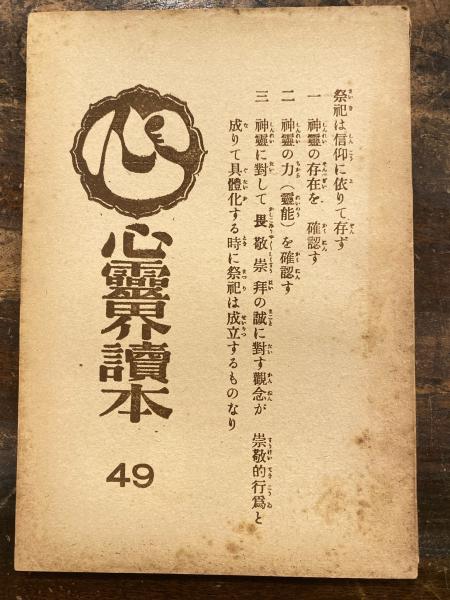 祭祀は信仰に依りて存ず
一 神靈の存在を 確認す
二 神靈の力(靈能)を確認す
三 神靈に對して 畏敬崇拜の誠に對す觀念が 崇敬的行爲と
成りて具體化する時に祭祀は成立するものなり
心
心靈界讀本
49